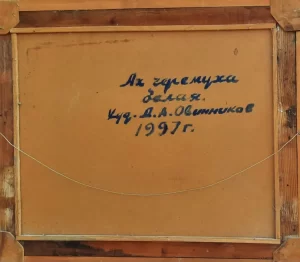 Ах черемуха
белая.
Худ. Д. А. Овчинников
1997 г.